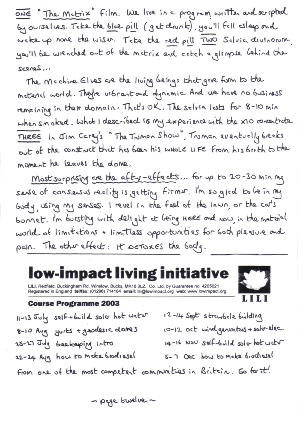 ONE "The Matrix" film. We live in a program written and scripted
by ourselves. Take the blue pill (get drunk), you'll fall asleep and
wake up none the wiser. Take the red pill TWO Salvia divinorum
you'll be wrenched out of the matrix and catch a glimpse behind the
scenes...
The Machine Elves are the living beings that give form to the
material world. They're vibrant and dynamic. And we have no business
remaining in their domain. That's OK. The salvia lasts for 8-10 min
when smoked. What I described is my experience with the x10 concentrate
THREE In Jim Carey's "The Truman Show", Truman eventually breaks
out of the construct that has been his whole LIFE from his birth to the
moment he leaves the dome.
Most surprising are the after-effects... for up to 20-30 min my
sense of consensus reality is getting firmer. I'm so glad to be in my
body, using my senses. I revel in the feel of the lawn, or the car's
bonnet. I'm bursting with delight at being HERE and NOW, in the material
world of limitations + limitless opportunities for both pleasure and
pain. The other effect: IT DETOXES the body.
low-impact living initiative
LILI, Redfield, Buckingham Rd, Winslow, Bucks, MK18 3LZ. Co. Ltd. by Guarantee no 4205021
Registered in England tel/fax: (01296) 714184 email: lili@lowimpact.org web: www.lowimpact.org
LILI
Course Programme 2003
11-13 July self-build solar hot water
12-14 Sept strawbale building
8-10 Aug yurts + geodesic domes
10-12 Oct wind generators + solar elec.
25-27 July beekeeping intro
14-16 Nov self build solar hot water
22-24 Aug how to make biodiesel
5-7 Dec how to make biodiesel
From one of the most competent communities in Britain. Go for it!
~ page twelve ~